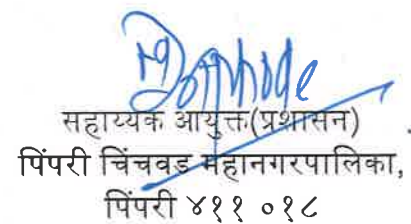 सहाय्यक आयुक्त(प्रशासन)
पिंपरी चिंचवड महानगरपालिका,
पिंपरी ४११ ०१८